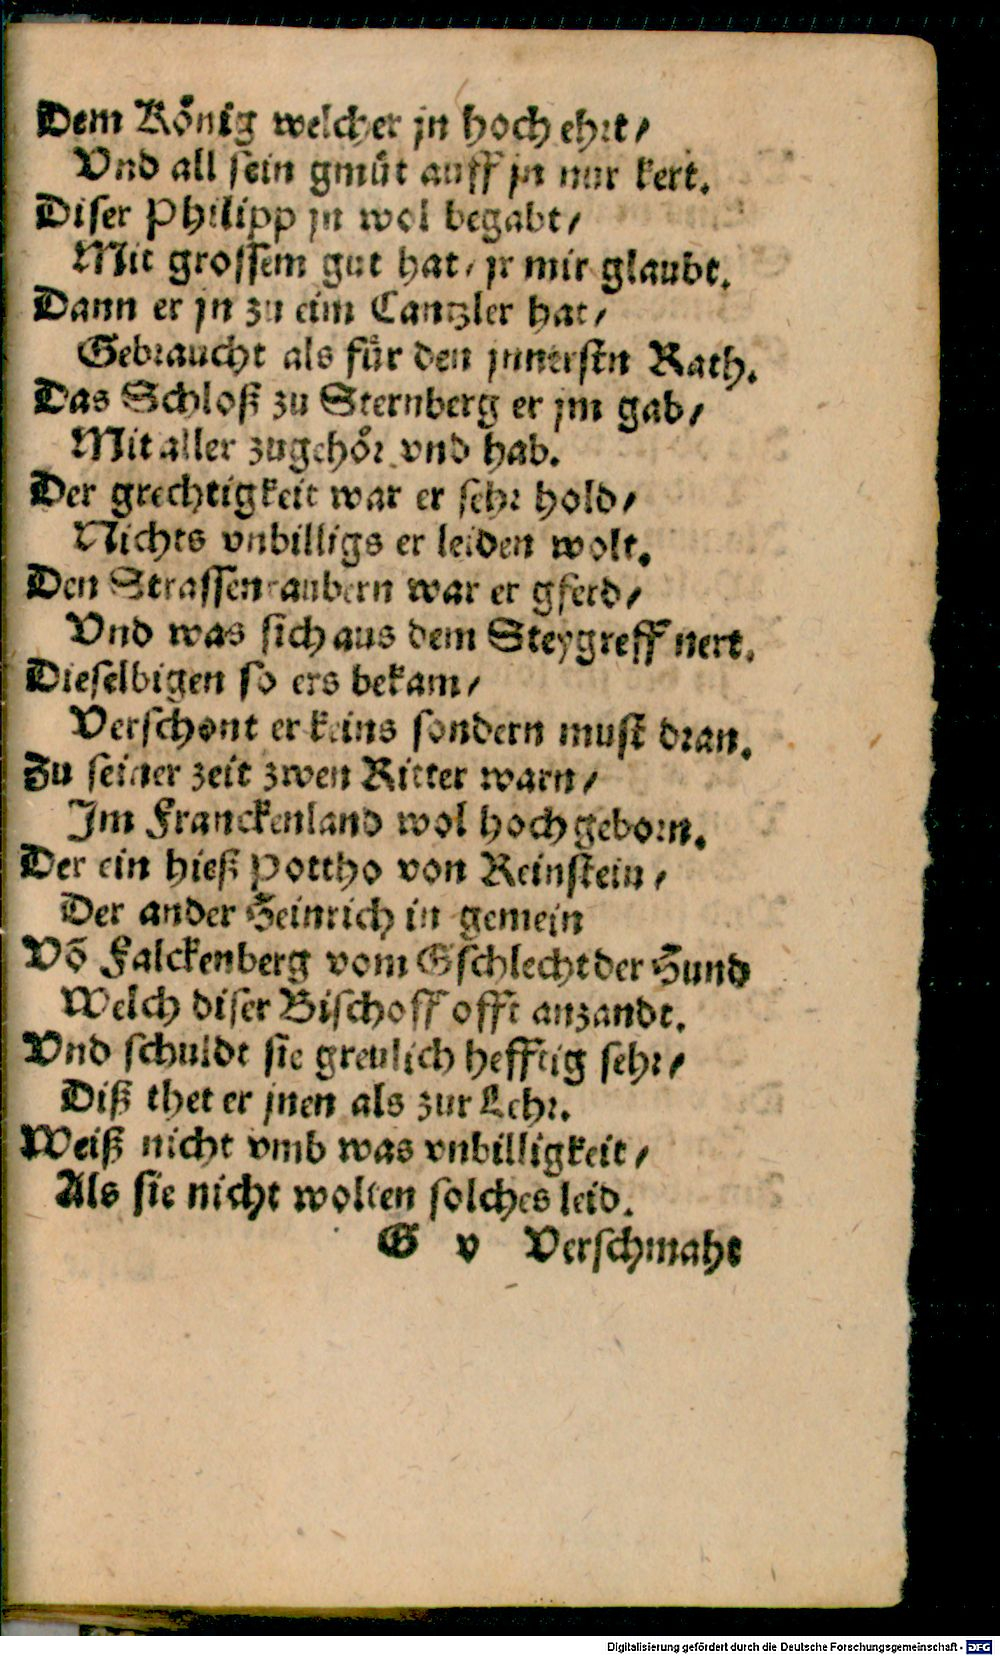 Dem Koͤnig welcher jn hoch ehrt/
Vnd all sein gmuͤt auff jn nur kert.
Diser Philipp jn wol begabt/
Mit grossem gut hat/ jr mir glaubt.
Dann er jn zu eim Cantzler hat/
Gebraucht als fuͤr den jnnerstn Rath.
Das Schloß zu Sternberg er jm gab/
Mit aller zugehoͤr vnd hab.
Der grechtigkeit war er sehr hold/
Nichts vnbilligs er leiden wolt.
Den Strassenraubern war er gferd/
Vnd was sich aus dem Steygreff nert.
Dieselbigen so ers bekam/
Verschont er keins sondern must dran.
Zu seiner zeit zwen Ritter warn/
Im Franckenland wol hoch geborn.
Der ein hieß Pottho von Reinstein/
Der ander Heinrich in gemein
Võ Falckenberg vom Gschlecht der Hund
Welch diser Bischoff offt anzandt.
Vnd schuldt sie greulich hefftig sehr/
Diß thet er jnen als zur Lehr.
Weiß nicht vmb was vnbilligkeit/
Als sie nicht wolten solches leid.
G v Verschmaht
Digitalisierung gefördert durch die Deutsche Forschungsgemeinschaft - DFG